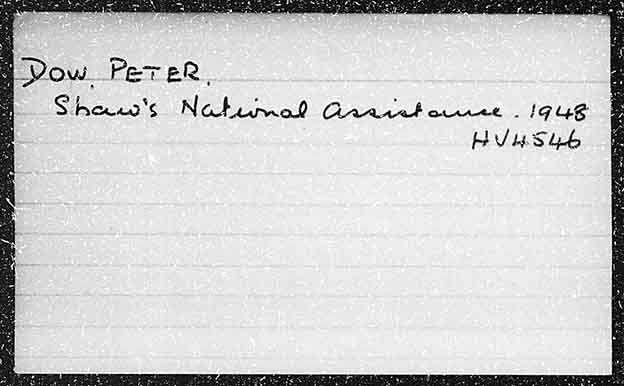 DOW, PETER.
Shaw's National Assistance. 1948
HV4546